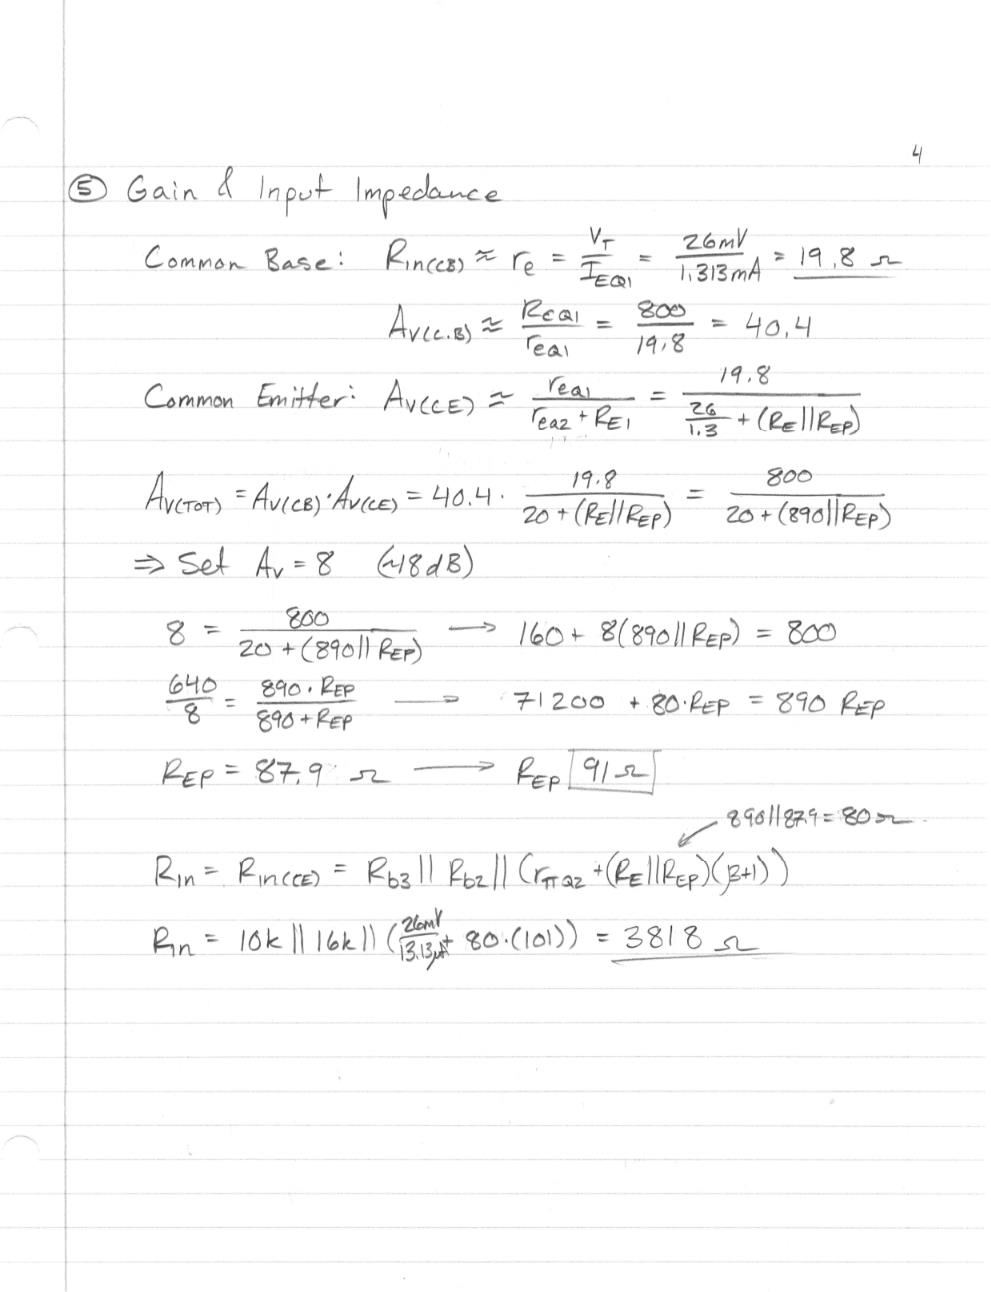 4
⑤ Gain & Input Impedance
Common Base: Rin(CB) ≈ re = VT/IEQ1 = 26mV/1.313mA = 19.8 Ω
Av(C.B) ≈ RCQ1/reQ1 = 800/19.8 = 40.4
Common Emitter: Av(CE) ≈ reQ1/(reQ2 + RE1) = 19.8/(26/1.3 + (RE||REP))
Av(TOT) = Av(CB)·Av(CE) = 40.4 · 19.8/(20 + (RE||REP)) = 800/(20 + (890||REP))
⇒ Set Av = 8 (~18dB)
8 = 800/(20 + (890||REP)) → 160 + 8(890||REP) = 800
640/8 = 890·REP/(890 + REP) → 71200 + 80·REP = 890 REP
REP = 87.9 Ω → REP 91Ω
890||87.9 = 80Ω
Rin = Rin(CE) = Rb3 || Rb2 || (rπQ2 + (RE||REP)(β+1))
Rin = 10k || 16k || (26mV/13.13μA + 80·(101)) = 3818 Ω